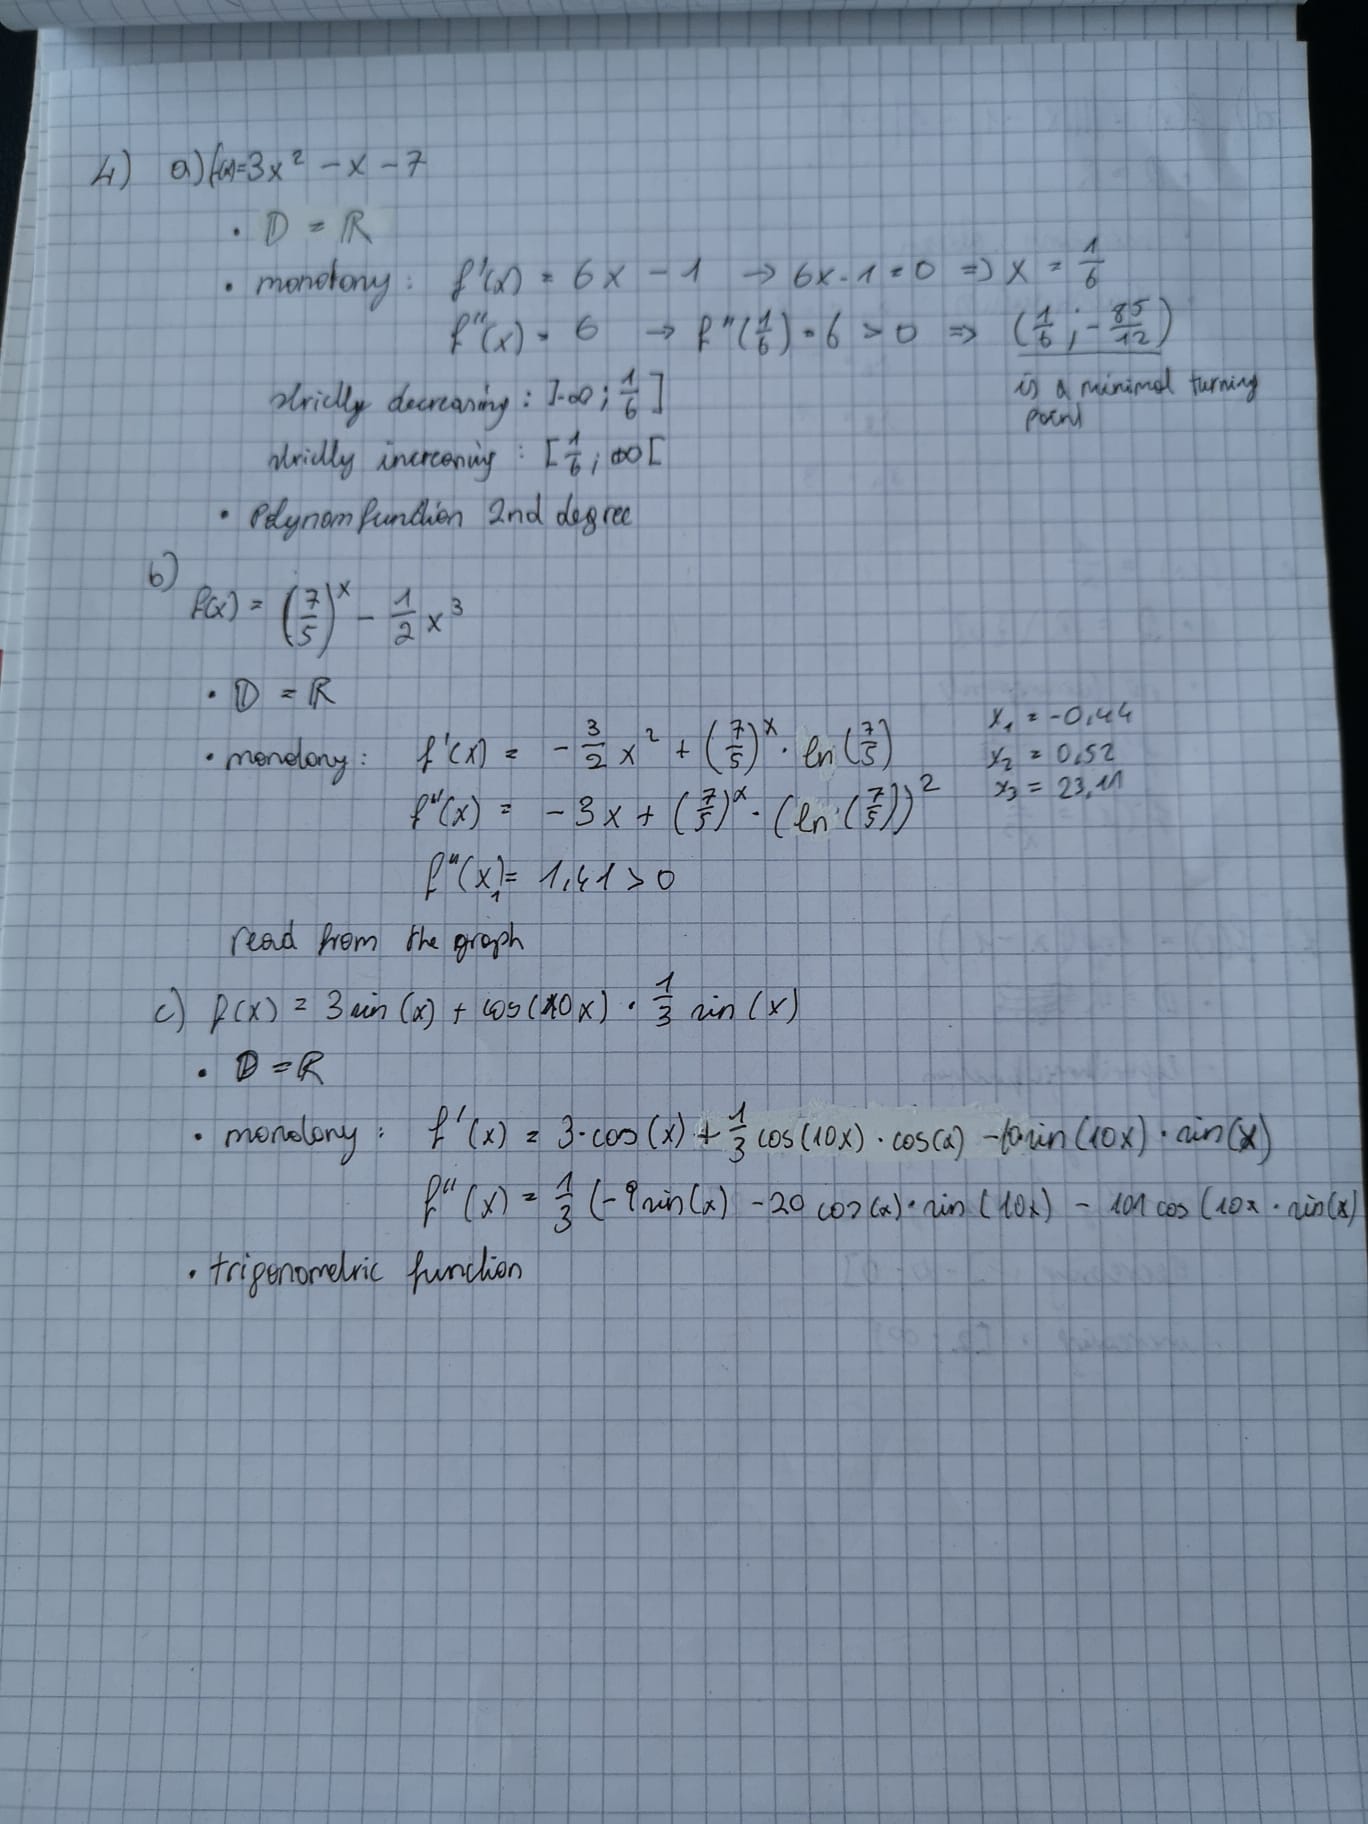 4) a) f(x)=3x² - x - 7
• D = ℝ
• monotony: f'(x) = 6x - 1 → 6x - 1 = 0 => x = 1/6
f''(x) = 6 → f''(1/6) = 6 > 0 => (1/6 ; -85/12)
is a minimal turning
point
strictly decreasing: ]-∞; 1/6]
strictly increasing: [1/6; ∞[
• Polynomfunction 2nd degree
b)
f(x) = (7/5)^x - 1/2 x³
• D = ℝ
• monotony: f'(x) = -3/2 x² + (7/5)^x · ln(7/5)
x₁ = -0,44
x₂ = 0,52
x₃ = 23,11
f''(x) = -3x + (7/5)^x · (ln(7/5))²
f''(x₁) = 1,41 > 0
read from the graph
c) f(x) = 3sin(x) + cos(10x) · 1/3 sin(x)
• D = ℝ
• monotony: f'(x) = 3·cos(x) + 1/3 cos(10x)·cos(x) - 10sin(10x)·sin(x)
f''(x) = 1/3 (-9sin(x) - 20cos(x)·sin(10x) - 101cos(10x · sin(x)
• trigonometric function